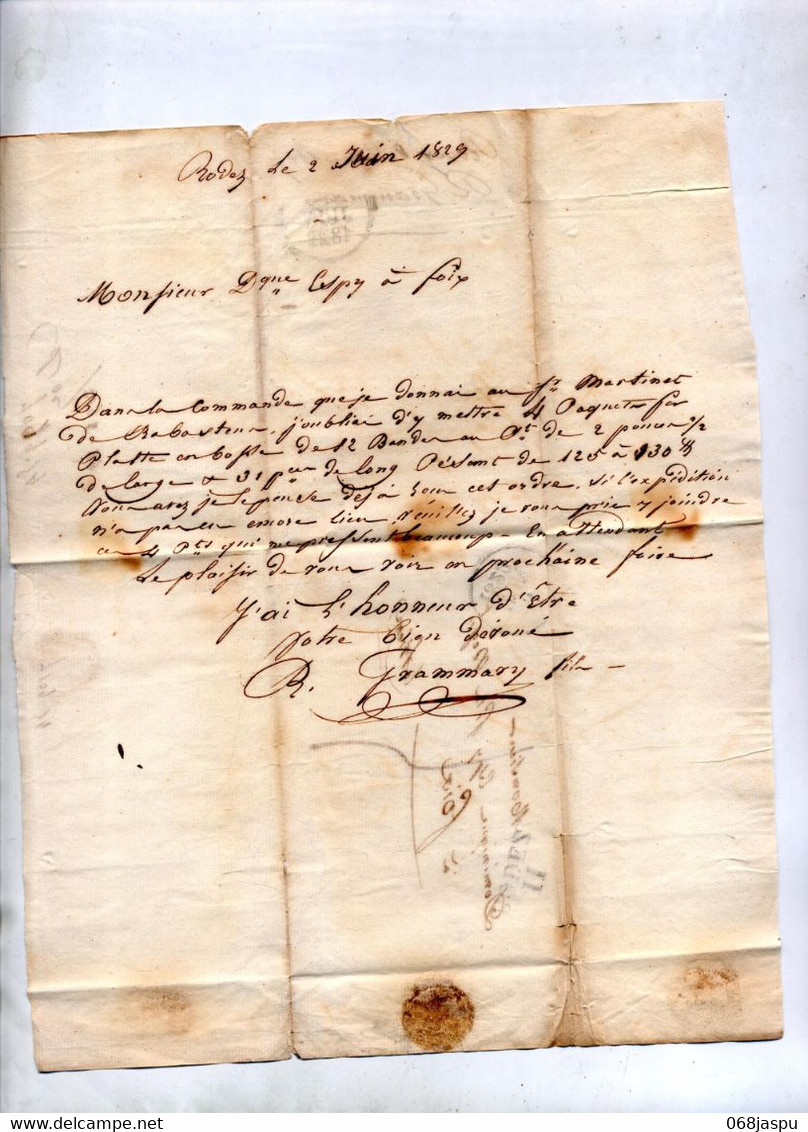 Rodez le 2 Juin 1829
Monsieur Dque Espy à foix
Dans la Commande que je donnai au Sr. Martinet
de Rabasteins, j'oubliai d'y mettre 4 Paquets fer
Platte en bosse de 12 Bandes au Pt. de 2 pouces 1/2
de large & 31 pces de long Pésant de 125 à 130 ℔
vous avez je le pense déjà sous cet ordre. Si l'expédition
n'a pas eu encore lieu, veuillez je vous prie y joindre
ces 4 Pts qui me pressent beaucoup. En attendant
Le plaisir de vous voir en prochaine foire
J'ai L'honneur d'Être
Votre bien dévoué
R. Grammary fils
068jaspu